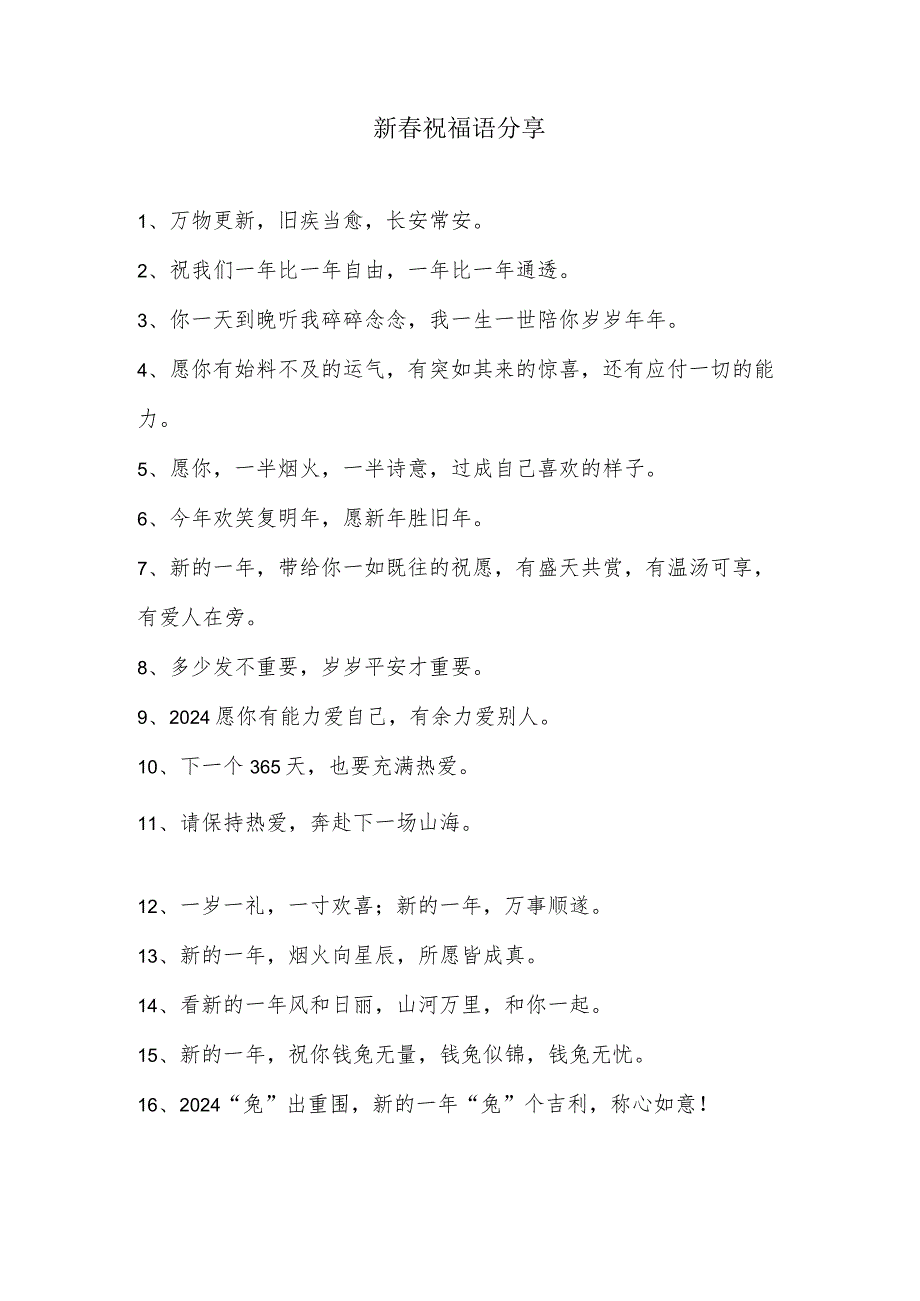 新春祝福语分享
1、万物更新，旧疾当愈，长安常安。
2、祝我们一年比一年自由，一年比一年通透。
3、你一天到晚听我碎碎念念，我一生一世陪你岁岁年年。
4、愿你有始料不及的运气，有突如其来的惊喜，还有应付一切的能
力。
5、愿你，一半烟火，一半诗意，过成自己喜欢的样子。
6、今年欢笑复明年，愿新年胜旧年。
7、新的一年，带给你一如既往的祝愿，有盛天共赏，有温汤可享，
有爱人在旁。
8、多少发不重要，岁岁平安才重要。
9、2024愿你有能力爱自己，有余力爱别人。
10、下一个365天，也要充满热爱。
11、请保持热爱，奔赴下一场山海。
12、一岁一礼，一寸欢喜；新的一年，万事顺遂。
13、新的一年，烟火向星辰，所愿皆成真。
14、看新的一年风和日丽，山河万里，和你一起。
15、新的一年，祝你钱兔无量，钱兔似锦，钱兔无忧。
16、2024“兔”出重围，新的一年“兔”个吉利，称心如意！